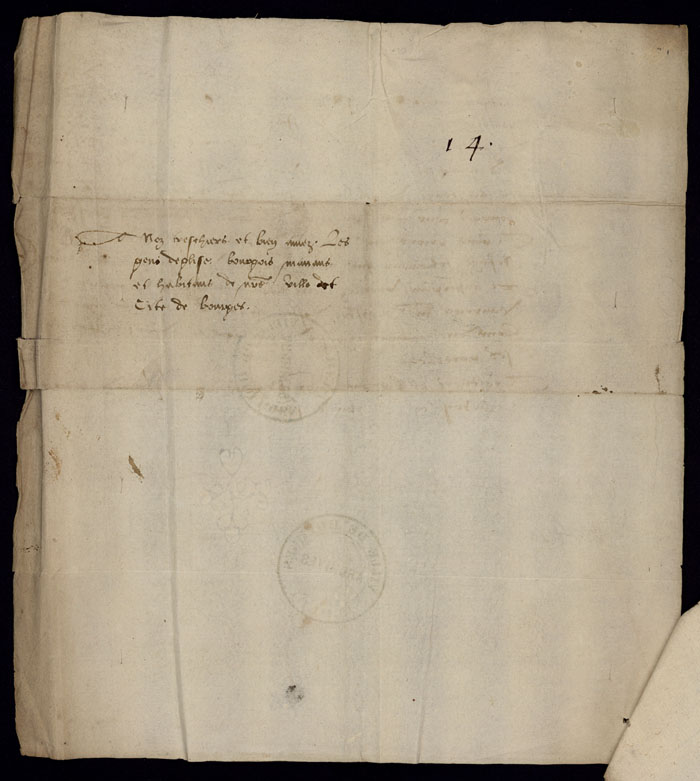 14.
A Noz treschiers et bien amez Les
gens deglise bourgois manans
et habitans de nre ville et
Cite de